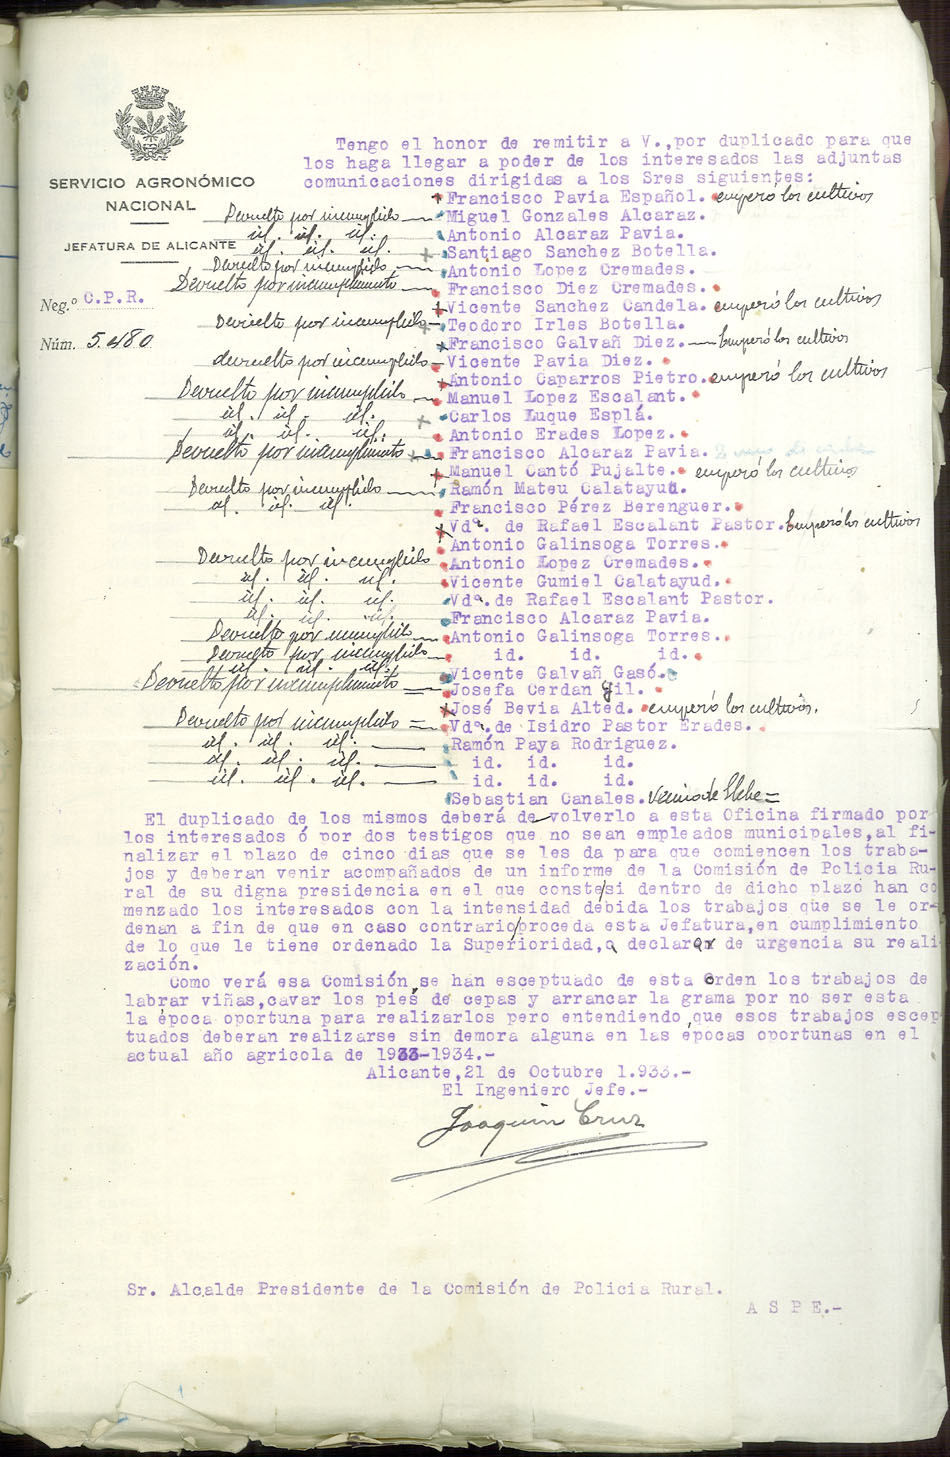 SERVICIO AGRONÓMICO
NACIONAL
JEFATURA DE ALICANTE
Neg.º C.P.R.
Núm. 5.480
Tengo el honor de remitir a V.,por duplicado para que
los haga llegar a poder de los interesados las adjuntas
comunicaciones dirigidas a los Sres siguientes:
Francisco Pavia Español. emperó los cultivos
Devuelto por incumplido Miguel Gonzales Alcaraz.
id. id. id. Antonio Alcaraz Pavia.
id. id. id. Santiago Sanchez Botella.
Devuelto por incumplido Antonio Lopez Cremades.
Devuelto por incumplimento Francisco Diez Cremades.
Vicente Sanchez Candela. emperó los cultivos
Devuelto por incumplido Teodoro Irles Botella.
Francisco Galvañ Diez. Emperó los cultivos
devuelto por incumplido Vicente Pavia Diez.
Antonio Caparros Pietro. emperó los cultivos
Devuelto por incumplido Manuel Lopez Escalant.
id. id. id. Carlos Luque Esplá.
id. id. id. Antonio Erades Lopez.
Devuelto por incumplimento Francisco Alcaraz Pavia.
Manuel Cantó Pujalte. emperó los cultivos
Devuelto por incumplido Ramón Mateu Calatayud.
id. id. id. Francisco Pérez Berenguer.
Vdª. de Rafael Escalant Pastor. Emperó los cultivos
Antonio Galinsoga Torres.
Devuelto por incumplido Antonio Lopez Cremades.
id. id. id. Vicente Gumiel Calatayud.
id. id. id. Vdª.de Rafael Escalant Pastor.
id. id. id. Francisco Alcaraz Pavia.
Devuelto por incumplido Antonio Galinsoga Torres.
Devuelto por incumplido id. id. id.
id. id. id. Vicente Galvañ Gasó.
Devuelto por incumplimento Josefa Cerdan Gil.
José Bevia Alted. emperó los cultivos.
Devuelto por incumplido Vdª.de Isidro Pastor Erades.
id. id. id. Ramón Paya Rodriguez.
id. id. id. id. id. id.
id. id. id. id. id. id.
Sebastian Canales. Vecino de Elche
El duplicado de los mismos deberá de volverlo a esta Oficina firmado por
los interesados ó por dos testigos que no sean empleados municipales,al fi-
nalizar el plazo de cinco dias que se les da para que comiencen los traba-
jos y deberan venir acompañados de un informe de la Comisión de Policia Ru-
ral de su digna presidencia en el que conste/si dentro de dicho plazo han co
menzado los interesados con la intensidad debida los trabajos que se le or-
denan a fin de que en caso contrario/proceda esta Jefatura,en cumplimiento
de lo que le tiene ordenado la Superioridad,a declarar de urgencia su reali
zación.
Como verá esa Comisión,se han esceptuado de esta orden los trabajos de
labrar viñas,cavar los pies de cepas y arrancar la grama por no ser esta
la época oportuna para realizarlos pero entendiendo,que esos trabajos escep
tuados deberan realizarse sin demora alguna en las epocas oportunas en el
actual año agricola de 1933-1934.-
Alicante,21 de Octubre 1.933.-
El Ingeniero Jefe.-
Joaquin Cruz
Sr. Alcalde Presidente de la Comisión de Policia Rural.
A S P E.-